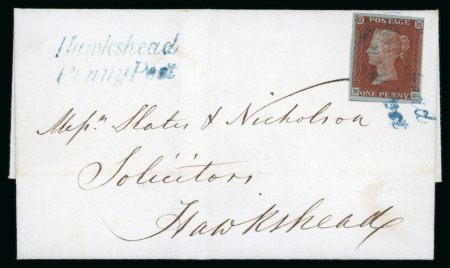 Hawkshead
Penny Post
POSTAGE
ONE PENNY
Messrs Slater & Nicholson
Solicitors
Hawkshead